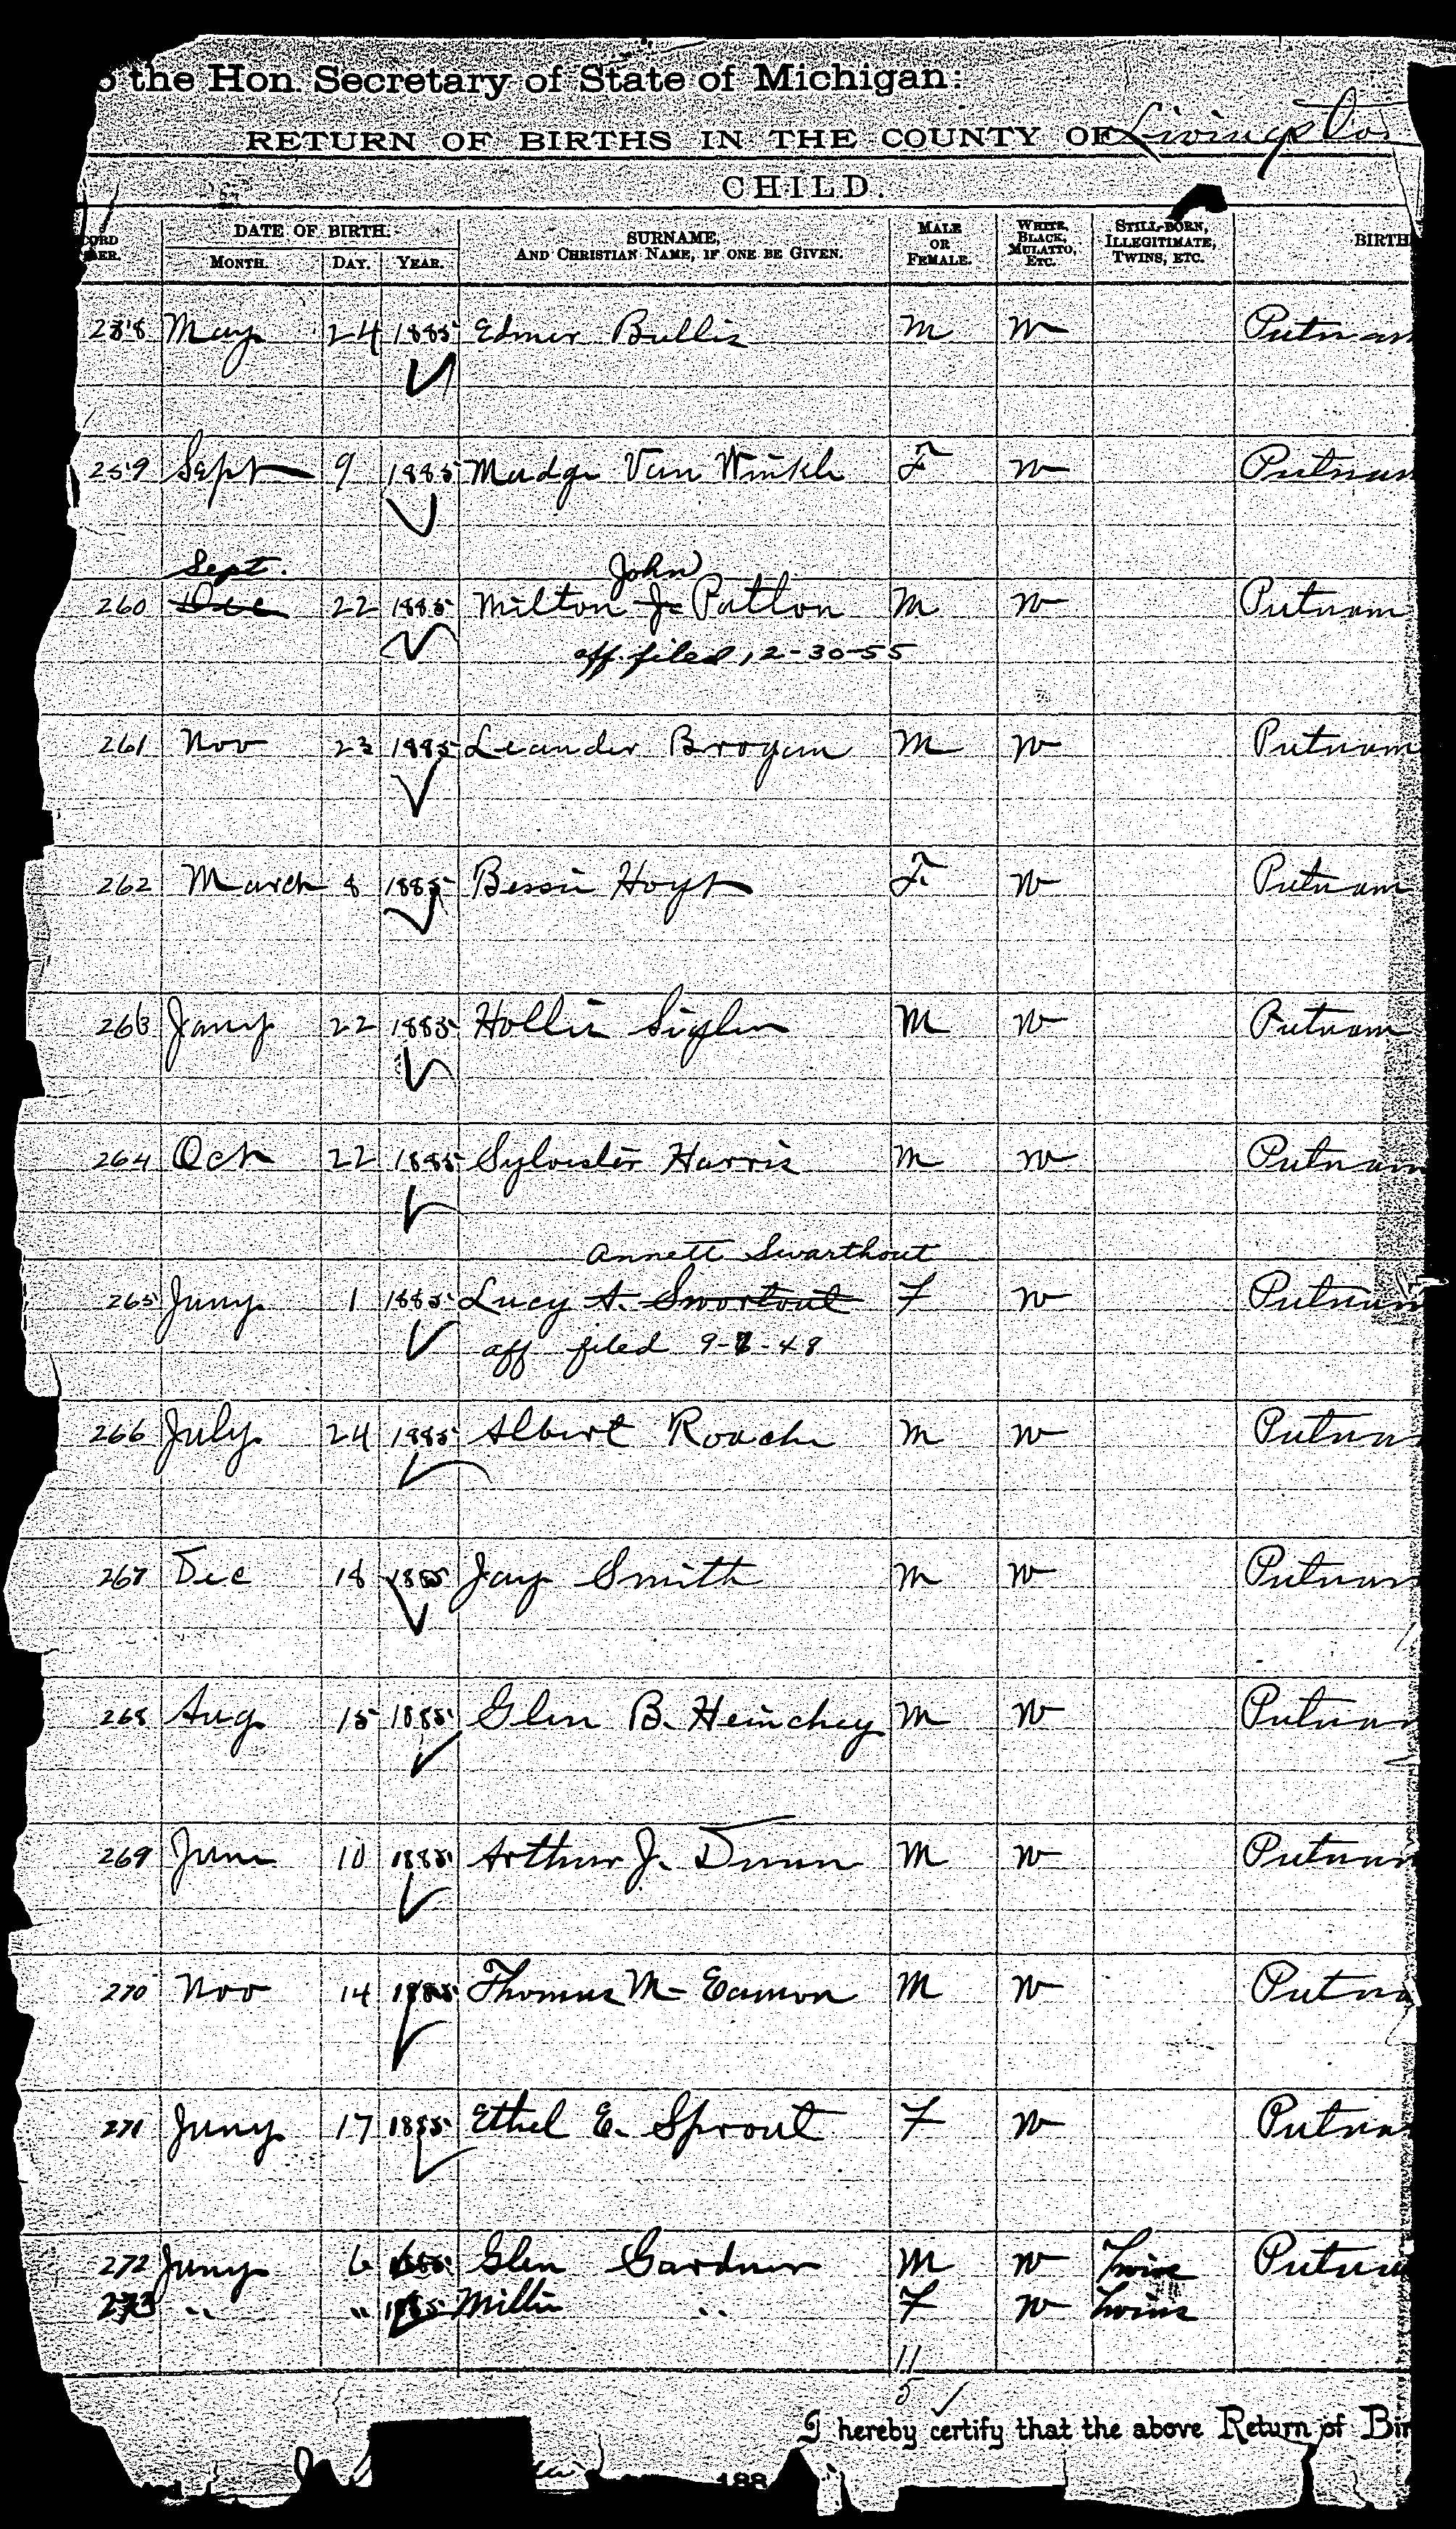 o the Hon. Secretary of State of Michigan:
RETURN OF BIRTHS IN THE COUNTY OF Livingston
CHILD.
DATE OF BIRTH.
MONTH. DAY. YEAR. SURNAME, AND CHRISTIAN NAME, IF ONE BE GIVEN. MALE OR FEMALE. WHITE, BLACK, MULATTO, ETC. STILL-BORN, ILLEGITIMATE, TWINS, ETC. BIRTH
258 May 24 1885 Elmer Bullis M W Putnam
259 Sept 9 1885 Madge Van Winkle F W Putnam
Sept. John
260 Dec 22 1885 Milton J. Patton M W Putnam
aff. filed 12-30-55
261 Nov 23 1885 Leander Brogan M W Putnam
262 March 8 1885 Bessie Hoyt F W Putnam
263 Jany 22 1885 Hollis Sigler M W Putnam
264 Oct 22 1885 Sylvester Harris M W Putnam
Annett Swarthout
265 Jany 1 1885 Lucy A. Swortout F W Putnam
aff filed 9-8-48
266 July 24 1885 Albert Roache M W Putnam
267 Dec 18 1885 Jay Smith M W Putnam
268 Aug 15 1885 Glen B. Heinchey M W Putnam
269 June 10 1885 Arthur J. Dunn M W Putnam
270 Nov 14 1885 Thomas M- Eamon M W Putna
271 Jany 17 1885 Ethel E. Sprout F W Putnam
272 Jany 6 1885 Glen Gardner M W Twins Putnam
273 " " 1885 Millie " F W Twins
11
5
I hereby certify that the above Return of Bir
188